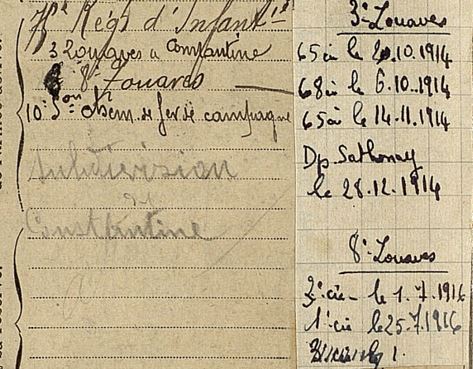 Régt d'Infant
3 Zouaves a Constantine
8e Zouaves
10e Son Chem. de fer de campagne
Subdivision
de
Constantine
3e Zouaves
65 cie le 2.10.1914
68 cie le 6.10.1914
65 cie le 14.11.1914
Dp Sathonay
le 28.12.1914
8e Zouaves
2e cie - le 1.7.1916
1e cie le 25.7.1916